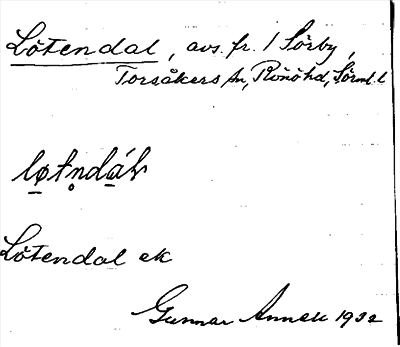 Lötendal, avs. fr. 1 Sörby,
Torsåkers sn, Rönö hd, Sörml. l
løtn̥dáɫ
Lötendal ek
Gunnar Annell 1932